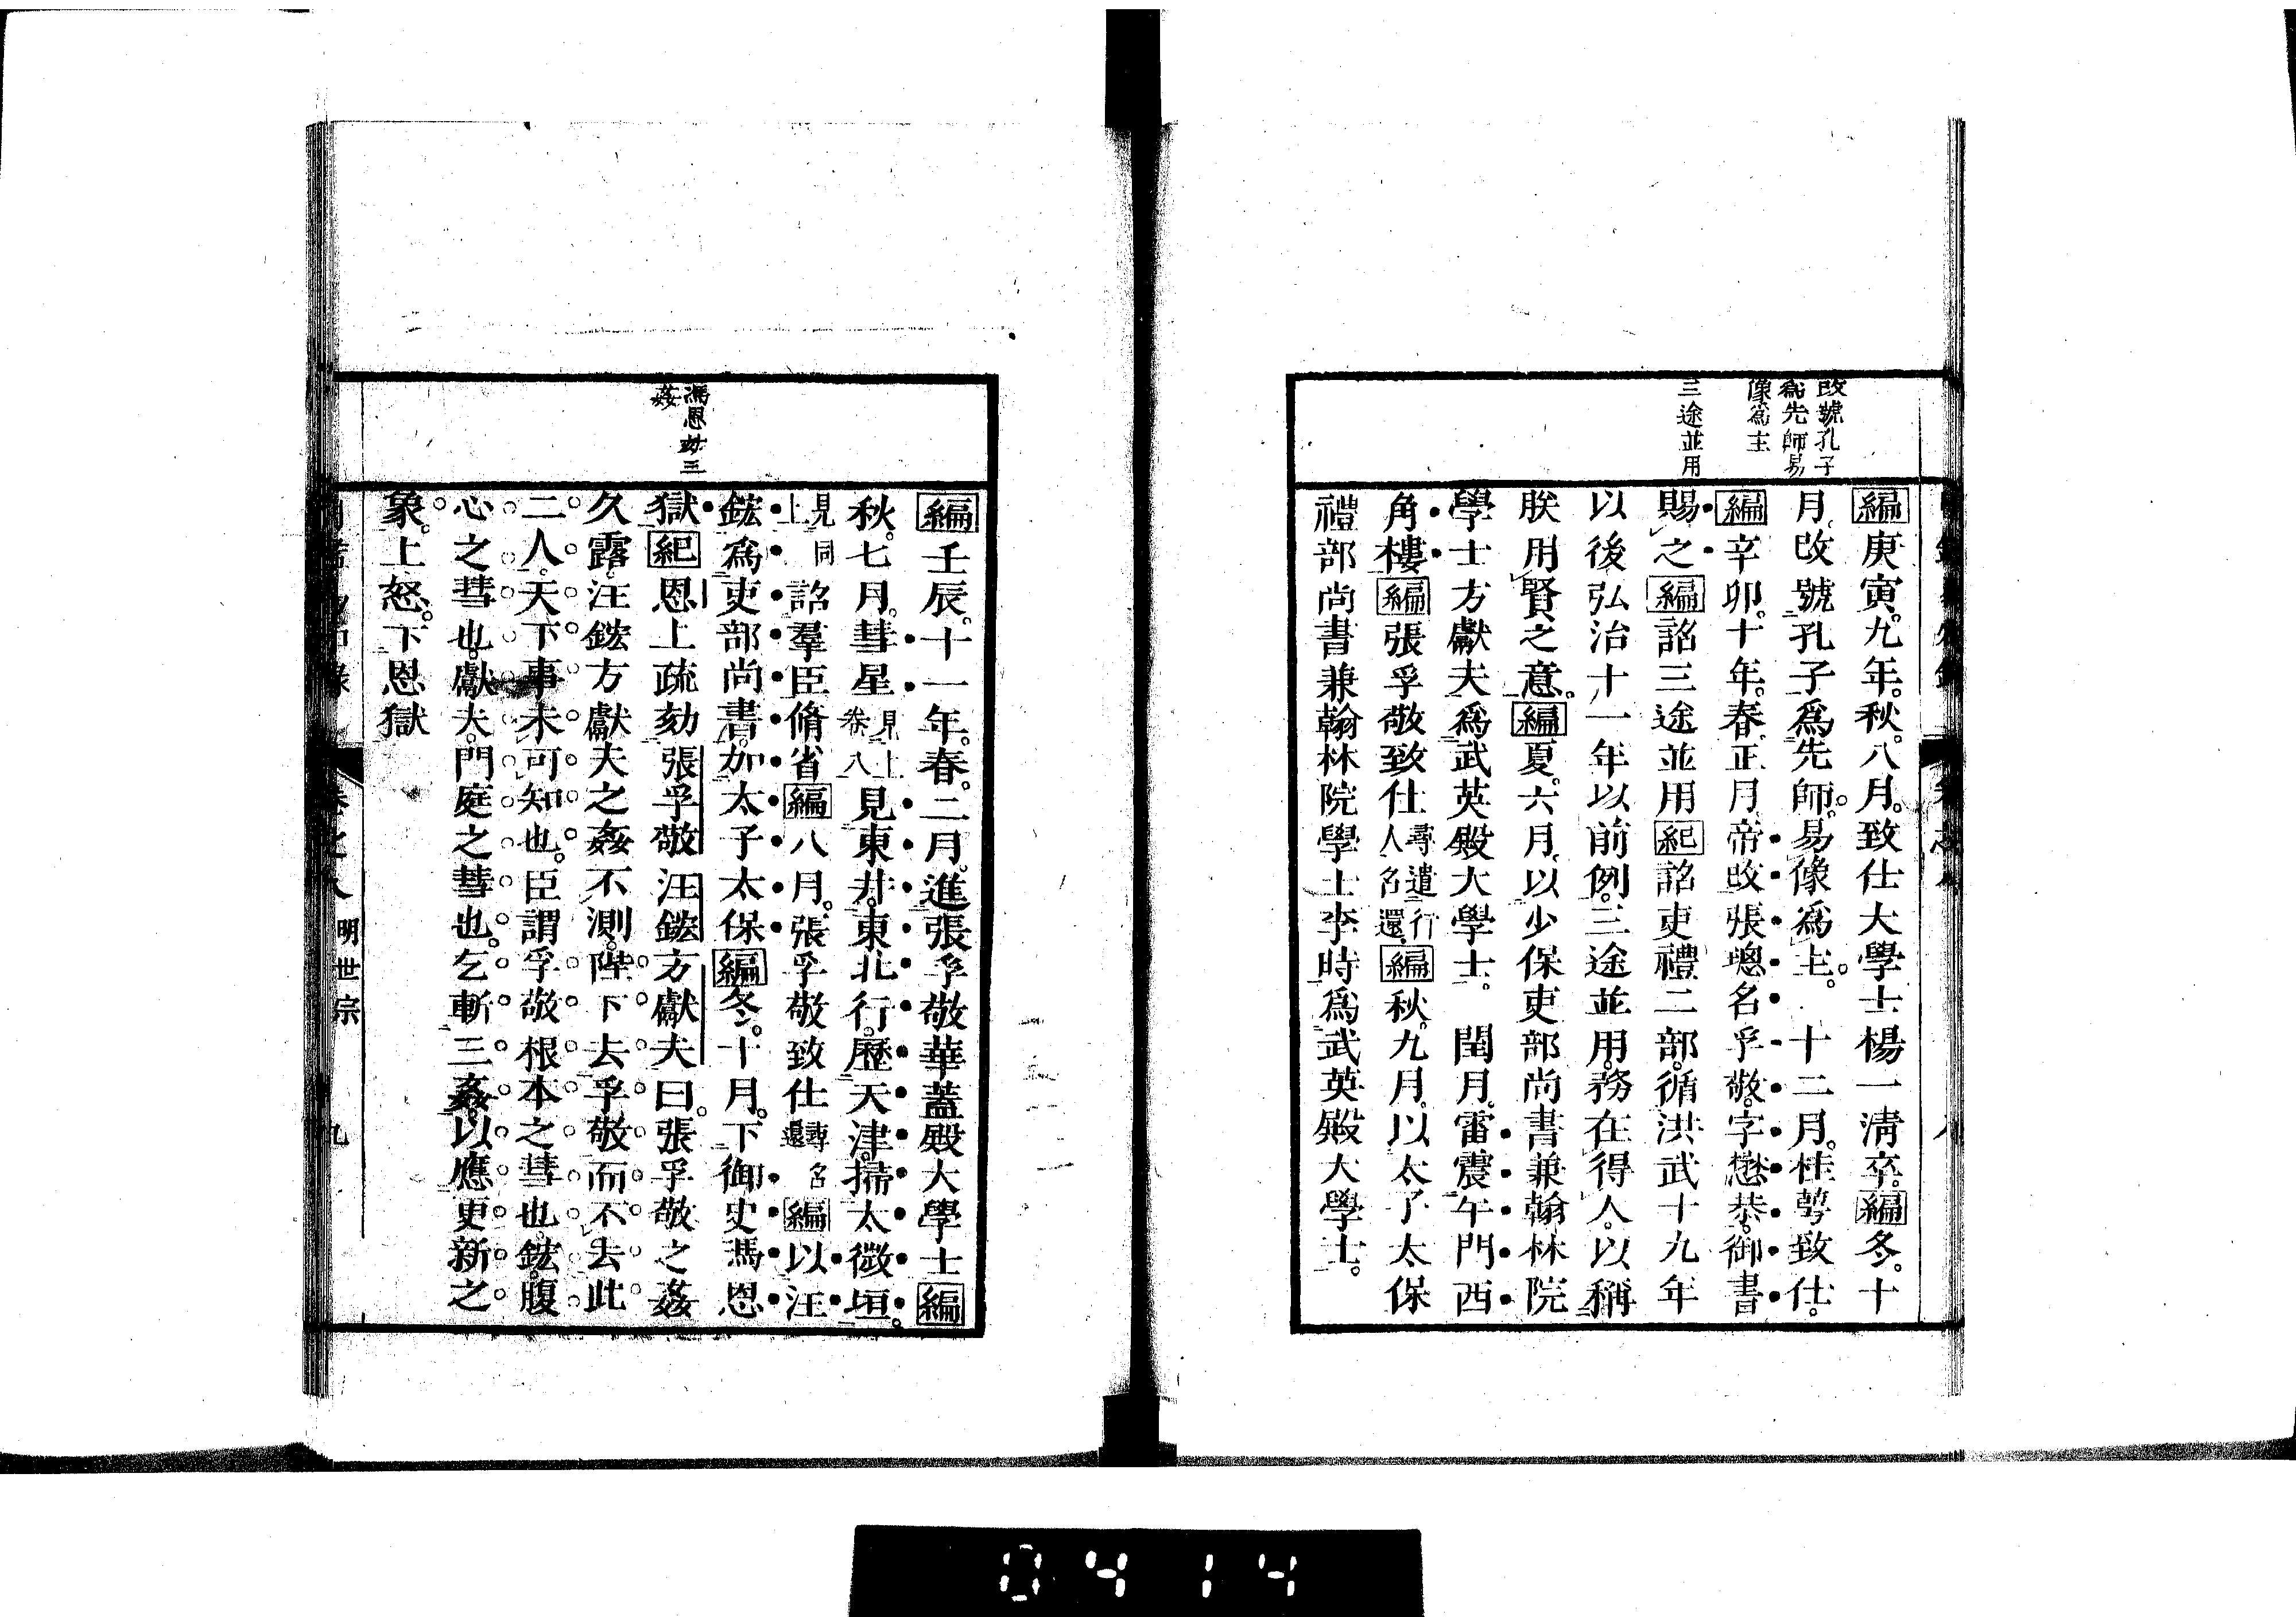 改號孔子
爲先師易
像爲主
三途並用
編庚寅。九年。秋。八月。致仕大學士楊一清卒。編冬。十
月。改號孔子爲先師。易像爲主。十二月。桂萼致仕。
編辛卯。十年。春。正月。帝改張璁名孚敬。字懋恭。御書
賜之編詔三途並用紀詔吏禮二部。循洪武十九年
以後弘治十一年以前例。三途並用。務在得人。以稱
朕用賢之意。編夏。六月。以少保吏部尚書兼翰林院
學士方獻夫爲武英殿大學士。閏月。雷震午門西
角樓編張孚敬致仕尋遣行人召還編秋。九月。以太子太保
禮部尚書兼翰林院學士李時爲武英殿大學士。
馮恩劾三
姦
編壬辰。十一年。春。二月。進張孚敬華蓋殿大學士編
秋。七月。彗星見上卷八見東井。東北行。歷天津。掃太微垣。
見同上詔羣臣脩省編八月。張孚敬致仕尋召還編以汪
鋐爲吏部尚書。加太子太保編冬。十月。下御史馮恩
獄紀恩上疏劾張孚敬汪鋐方獻夫曰。張孚敬之姦
久露。汪鋐方獻夫之姦不測。陛下去孚敬而不去此
二人。天下事未可知也。臣謂孚敬根本之彗也。鋐。腹
心之彗也。獻夫。門庭之彗也。乞斬三姦。以應更新之
象。上怒。下恩獄
明世宗
九
0414